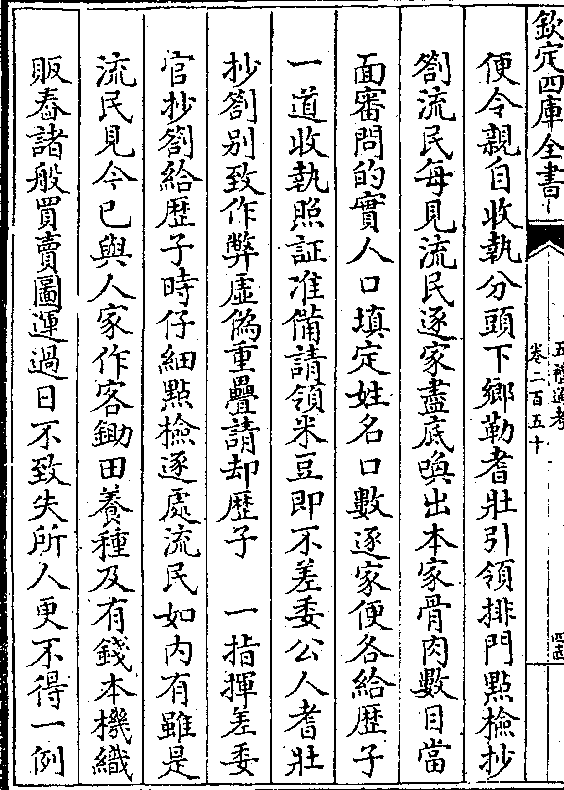 欽定四庫全書
五禮通考
卷二百五十
便令親自收執分頭下鄉勒耆壯引領排門點檢抄
劄流民每見流民逐家盡底喚出本家骨肉數目當
面審問的實人口填定姓名口數逐家便各給歴子
一道收執照証准備請領米豆即不差委公人耆壯
抄劄别致作弊虚偽重疊請却歴子　一指揮差委
官抄劄給歴子時仔細點檢逐處流民如内有雖是
流民見今已與人家作客鋤田養種及有錢本機織
販舂諸般買賣圖運過日不致失所人更不得一例